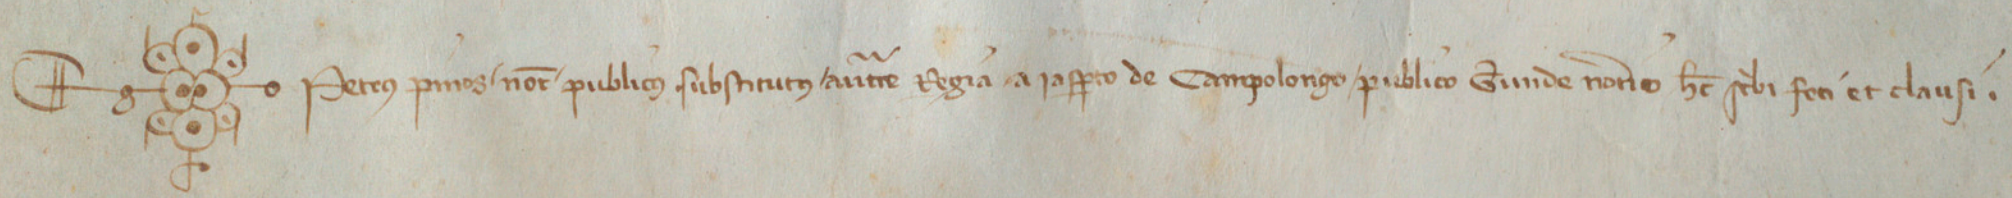 Ego Petrus pinos not publicus substitutus auctte Regia a Jaspto de Campolongo publico Gunde notio hec scbi feci et clausi